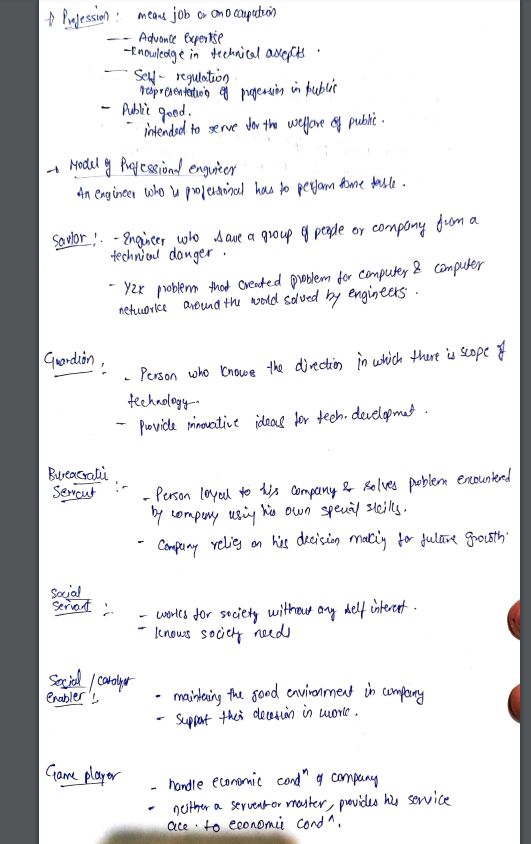 → Profession : means job or an occupation
— Advance Expertise
- Knowledge in technical ascepts .
— Self - regulation
representation of profession in public
- Public good.
- intended to serve for the welfare of public .
→ Model of Professional engineer
An engineer who is professional has to perform some tasks .
Savior :. - Engineer who save a group of people or company from a
technical danger .
- Y2K problem that created problem for computer & computer
networks around the world solved by engineers .
Guardian :
- Person who knows the direction in which there is scope of
technology.
- provide innovative ideas for tech. developmet .
Bureacratic
Servent :-
- Person loyal to his company & solves problem encountered
by company using his own special skills.
- Company relies on his decision making for future growth.
Social
Servant :-
- works for society without any self interest .
- knows society needs
Social / catalyst
Enabler :
- maintaing the good environment in company
- Support their decesion in work .
Game player
- handle economic condⁿ of company
- neither a servent or master, provides his service
acc. to economic condⁿ.